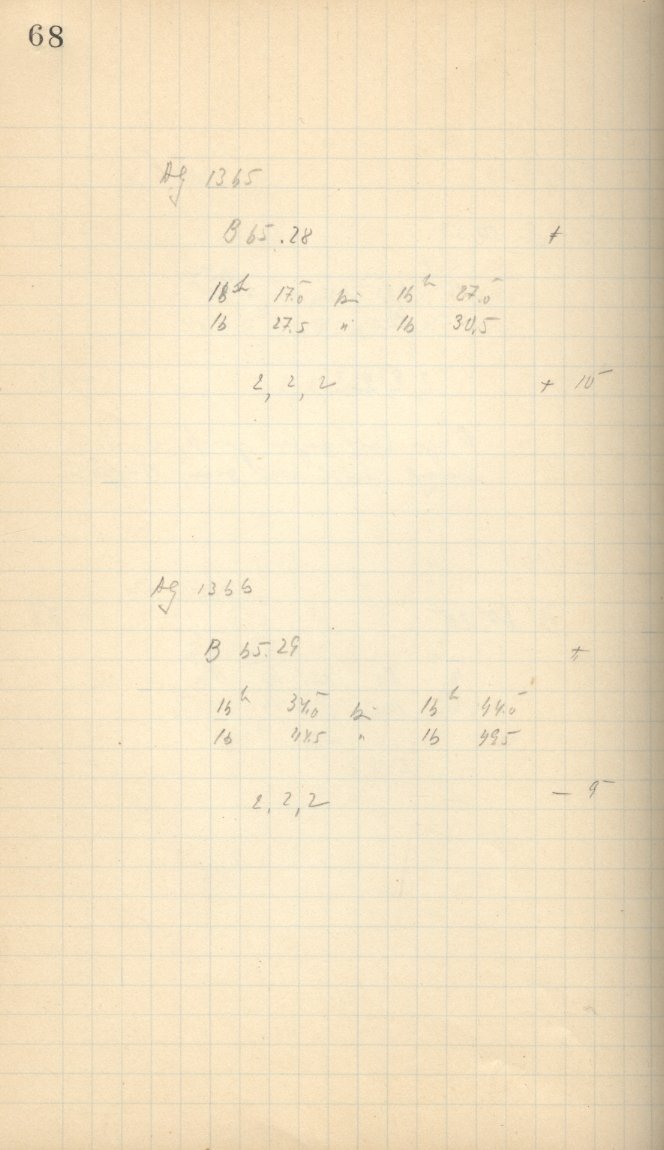 68
Ag 1365
B 65.28 +
16h 17.5 bis 16h 27.5
16 27.5 " 16 30,5
2, 2, 2 + 15
Ag 1366
B 65.29 ±
16h 34.5 bis 16h 44.5
16 44.5 " 16 49.5
2, 2, 2 – 5